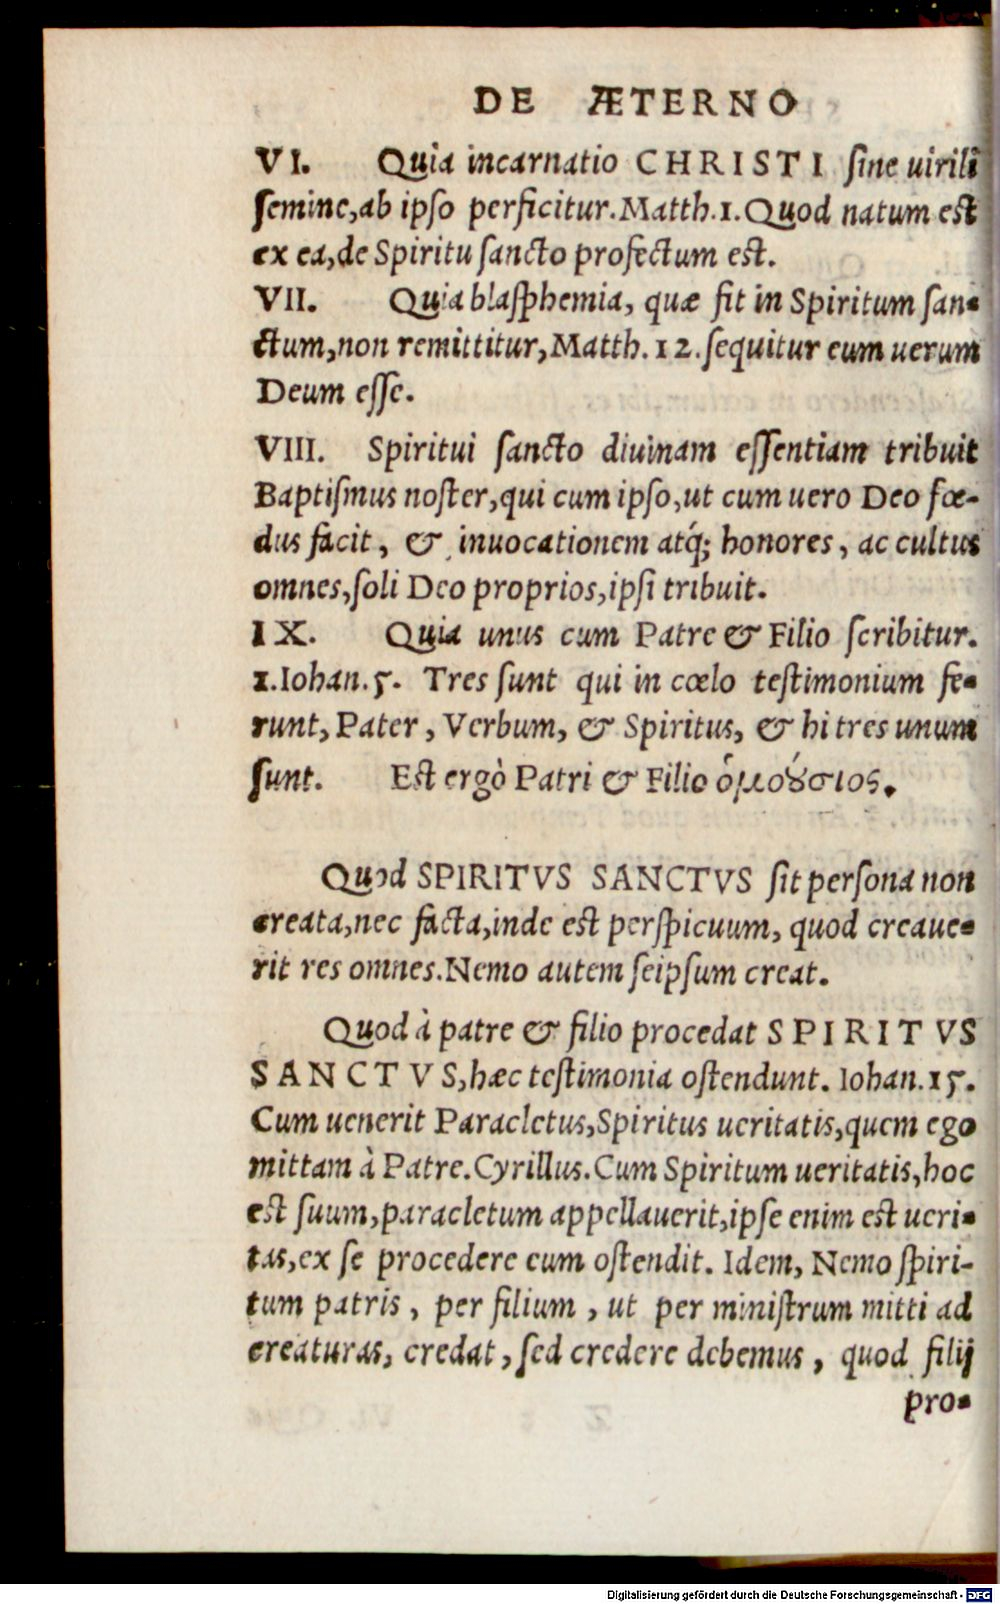 DE ÆTERNO
VI. Quia incarnatio CHRISTI sine uirili
semine,ab ipso perficitur.Matth.1.Quod natum est
ex ea,de Spiritu sancto profectum est.
VII. Quia blasphemia, quæ fit in Spiritum san-
ctum,non remittitur,Matth.12.sequitur eum uerum
Deum esse.
VIII. Spiritui sancto diuinam essentiam tribuit
Baptismus noster,qui cum ipso,ut cum uero Deo fœ-
dus facit, & inuocationem atq́; honores, ac cultus
omnes,soli Deo proprios,ipsi tribuit.
IX. Quia unus cum Patre & Filio scribitur.
1.Iohan.5. Tres sunt qui in cœlo testimonium fe-
runt, Pater, Verbum, & Spiritus, & hi tres unum
sunt. Est ergò Patri & Filio ὁμοούσιος.
Quod SPIRITVS SANCTVS sit persona non
creata,nec facta,inde est perspicuum, quod creaue-
rit res omnes.Nemo autem seipsum creat.
Quod à patre & filio procedat SPIRITVS
SANCTVS,hæc testimonia ostendunt. Iohan.15.
Cum uenerit Paracletus,Spiritus ueritatis,quem ego
mittam à Patre.Cyrillus.Cum Spiritum ueritatis,hoc
est suum,paracletum appellauerit,ipse enim est ueri-
tas,ex se procedere eum ostendit. Idem, Nemo spiri-
tum patris, per filium, ut per ministrum mitti ad
creaturas, credat, sed credere debemus, quod filij
pro-
Digitalisierung gefördert durch die Deutsche Forschungsgemeinschaft - DFG